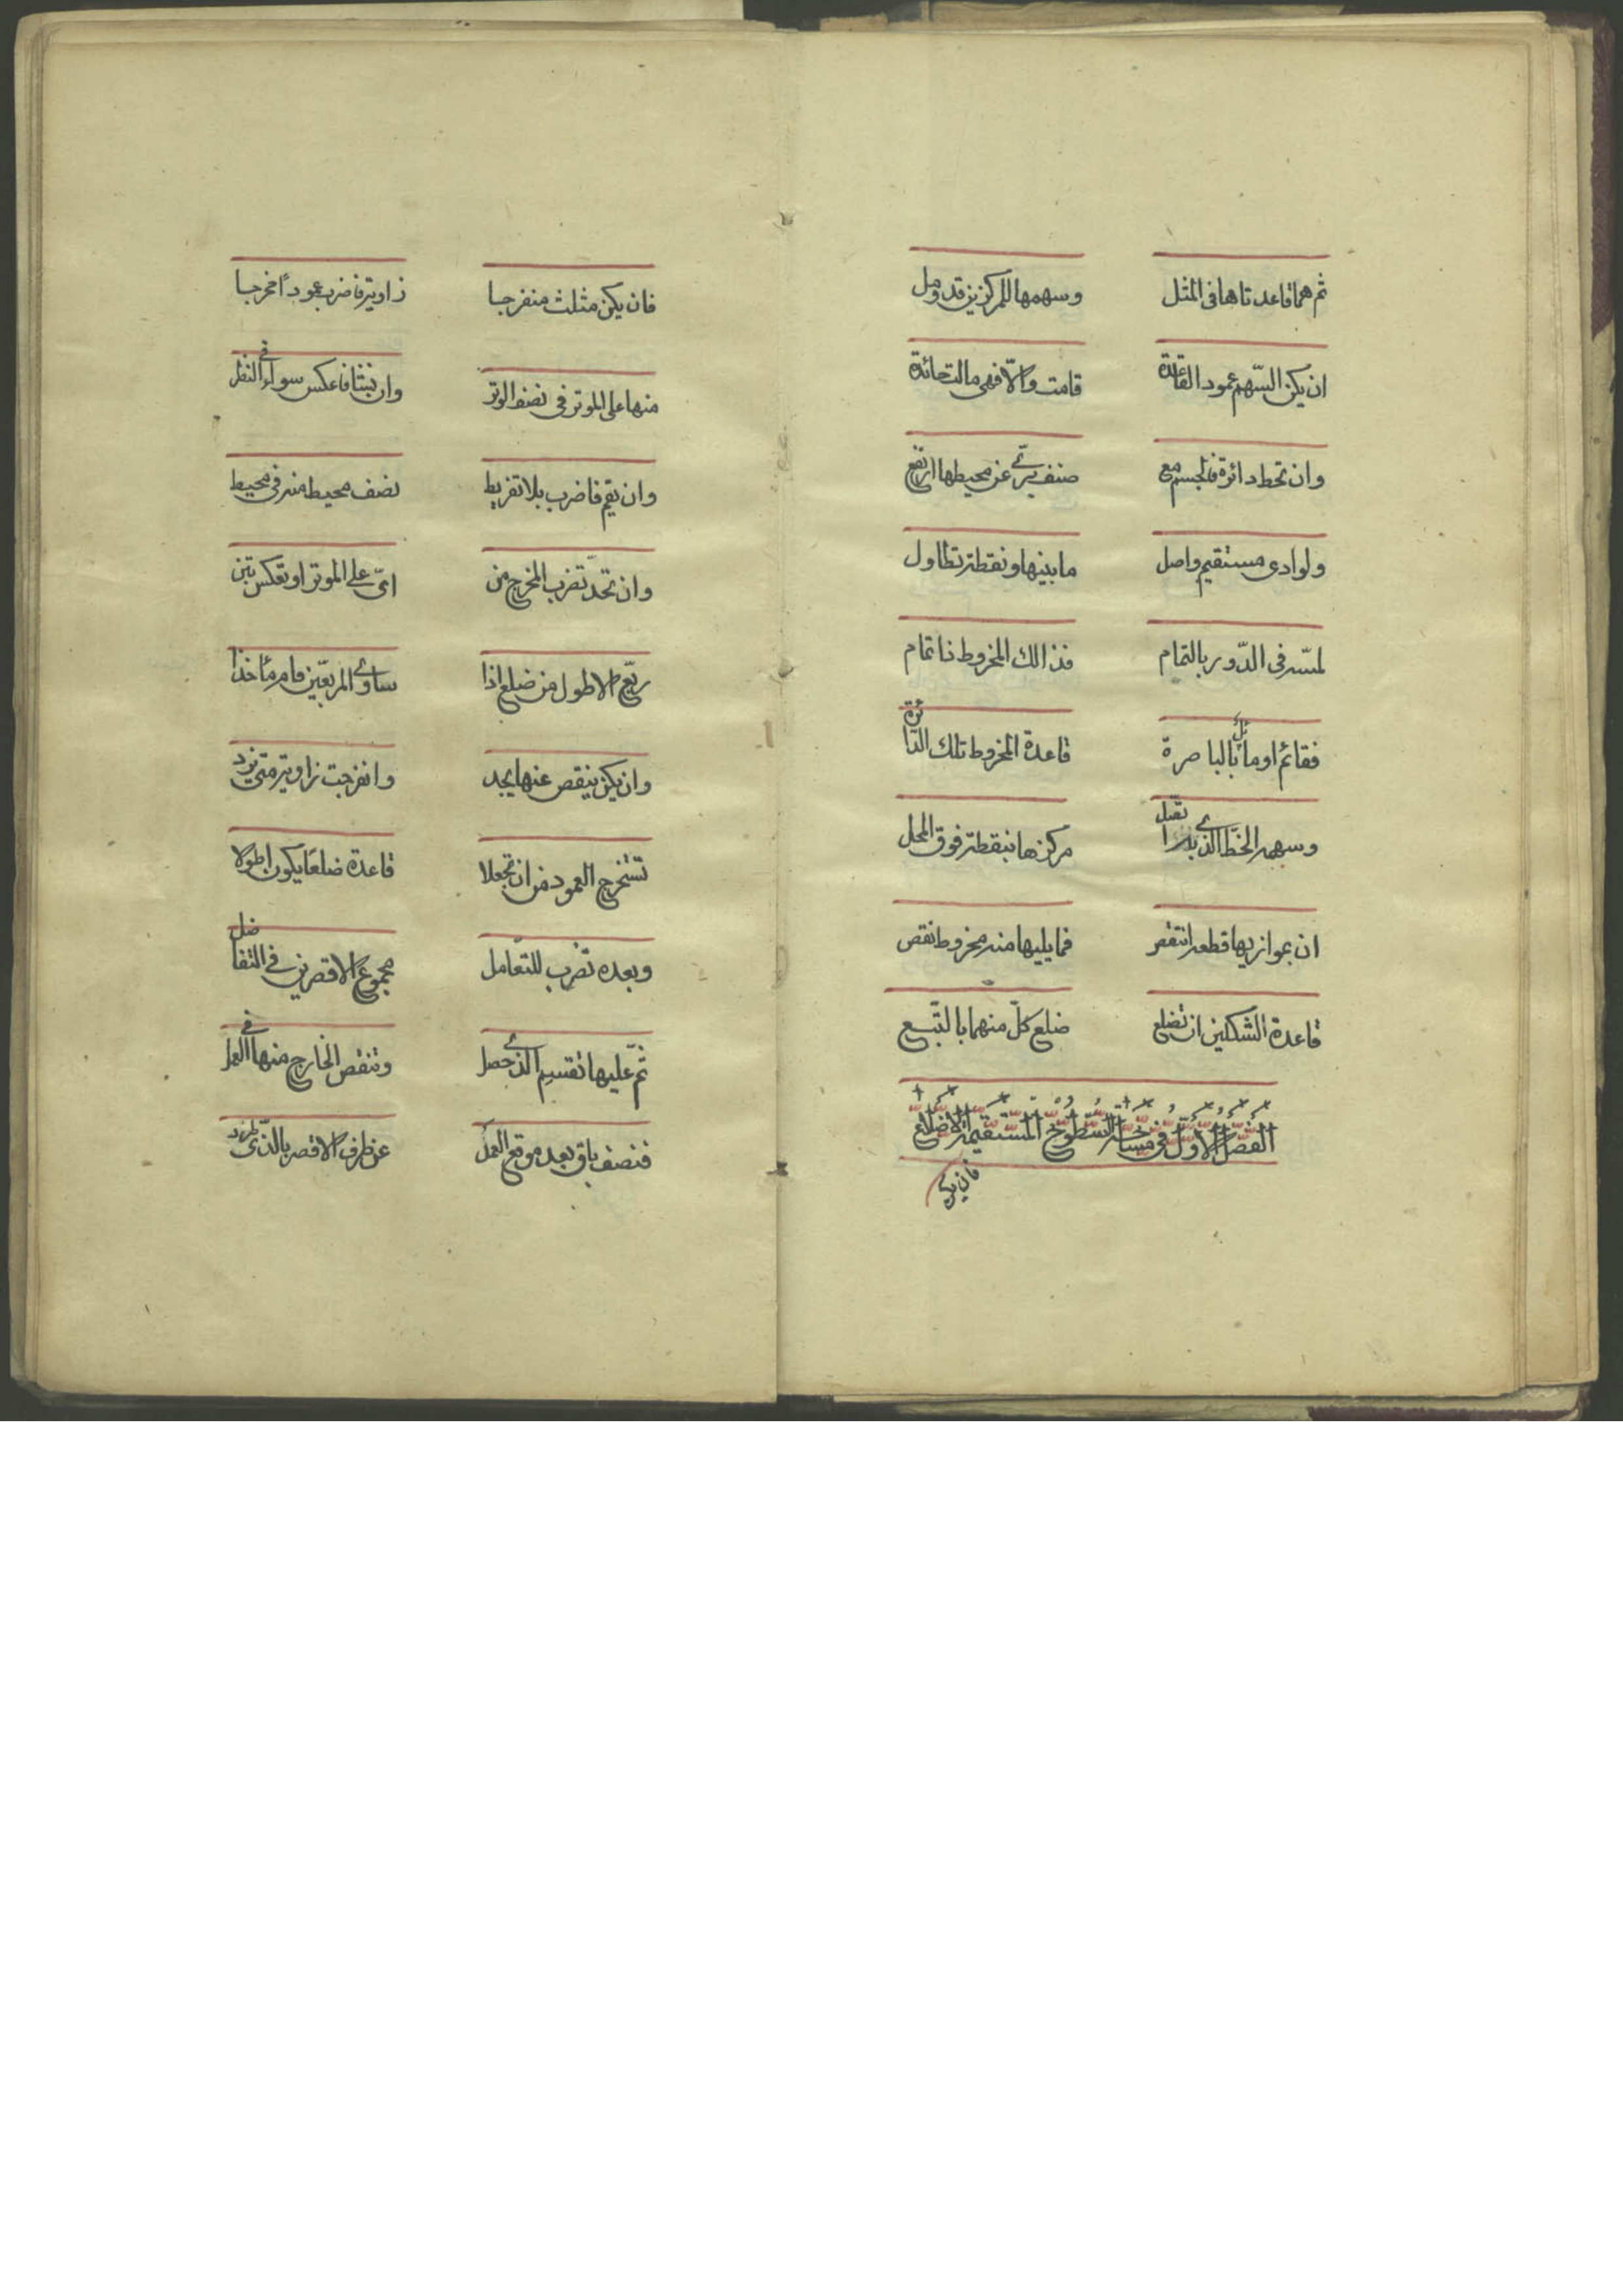 ثم هما قاعدتاها فى المثل وسهمها للمركزين قد وصل
ان يكن السّهم عمود القاعدة قامت والّا فهى مالت حائدة
وان تحط دائرة فالجسم مع صنف يرىٰ عن محيطها ارتفع
ولو ادى مستقيم واصل ما بينها ونقطة تطاول
لمسّه فى الدّور بالتمام فذالك المخروط ذا تمام
فقائم او مائل بالباصرة قاعدة المخروط تلك الدّائرة
وسهمه الخطّ الذى مركزها بنقطة فوق المحل
ان بموازيها قطعه انتقص فما يليها منه مخروط نقص
قاعدة الشكلين ان تضلع ضلع كلّ منهما بالتّبع
الفصل الاوّل فى مساحة السّطوح المستقيمة الاضلاع
فان يكن
فان يكن مثلث منفرجا زاوية فاضرب عمودًا مخرجا
منها على الموتر فى نصف الوتر وان تشا فاعكس سواء فى النظر
وان تقم فاضرب بلا تفريط نصف محيط منه فى محيط
وان تحدّ تضرب المخرج من اىّ على الموتر او تعكس تبن
ربّع الاطول من ضلع اذا ساوى المربّعين قام مأخذا
وان يكن ينقص عنها يحد وانفرجت زاوية متى يزد
تستخرج العمود من ان تجعلا قاعدة ضلعًا يكون اطولا
وبعده تضرب للتعامل مجموع الاقصرين فى التفاضل
ثمّ عليها تقسيم الذى حصل وتنقص الخارج منها فى العمل
فنصف باق بعد موقع العمل عن طرف الاقصر